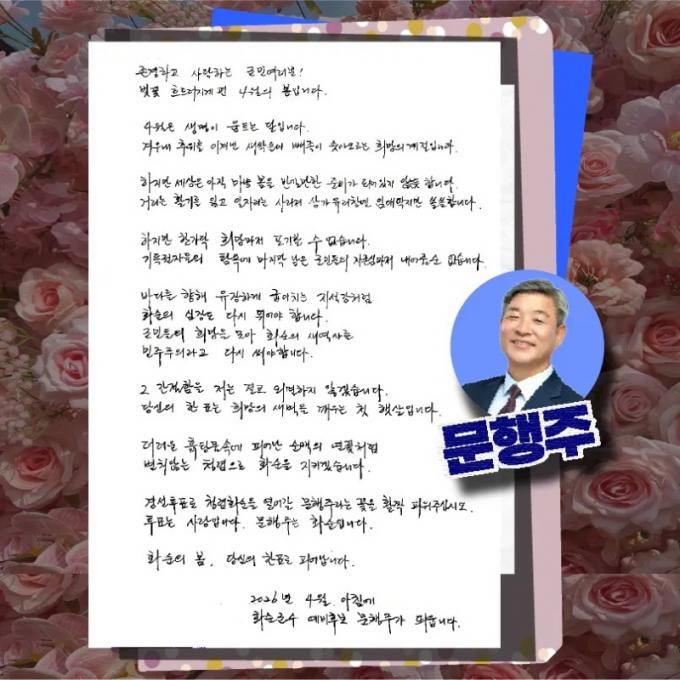 존경하고 사랑하는 군민여러분!
벚꽃 흐드러지게 핀 4월의 봄입니다.
4월은 생명이 움트는 달입니다.
겨우내 추위를 이겨낸 새싹들이 빼죽이 솟아오르는 희망의 계절입니다.
하지만 세상은 아직 따뜻한 봄을 준비가 되어있지 않은듯 합니다.
거리는 활기를 잃고 일자리는 사라져 상가 유리창엔 임대딱지만 쓸쓸합니다.
하지만 한가닥 희망마저 포기할 수 없습니다.
기득권자들의 탐욕에 마지막 남은 군민들의 자존심마저 내어줄순 없습니다.
바다를 향해 유장하게 굽이치는 지석강처럼
화순의 심장은 다시 뛰어야 합니다.
군민들의 희망을 모아 화순의 새역사는
민주주의라고 다시 써야합니다.
그 간절함을 저는 결코 외면하지 않겠습니다.
당신의 한 표는 희망의 새벽을 깨우는 첫 햇살입니다.
더러운 흙탕물속에 피어난 순백의 연꽃처럼
변치않는 청렴으로 화순을 지키겠습니다.
경선투표로 청렴화순을 열어갈 문행주라는 꽃을 활짝 피워주십시오.
투표는 사랑입니다. 문행주는 화순입니다.
화순의 봄, 당신의 한표로 피어납니다.
2026년 4월 아침에
화순군수 예비후보 문행주가 띄웁니다.
문행주